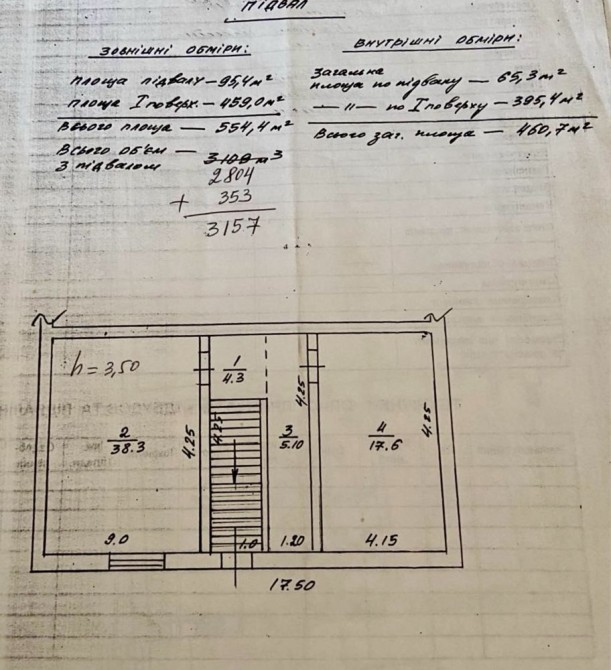 ПІДВАЛ
ЗОВНІШНІ ОБМІРИ:
площа підвалу — 95,4 м²
площа І поверх. — 459,0 м²
Всього площа — 554,4 м²
Всього об'єм —
з підвалом
3109 м3
2804
+ 353
3157
ВНУТРІШНІ ОБМІРИ:
Загальна
площа по підвалу — 65,3 м²
— 11 — по І поверху — 395,4 м²
Всього заг. площа — 460,7 м²
h = 3,50
1
4.3
2
38.3
4.25
4.25
3
5.10
4.25
4
17.6
4.25
9.0
1.0
1.20
4.15
17.50